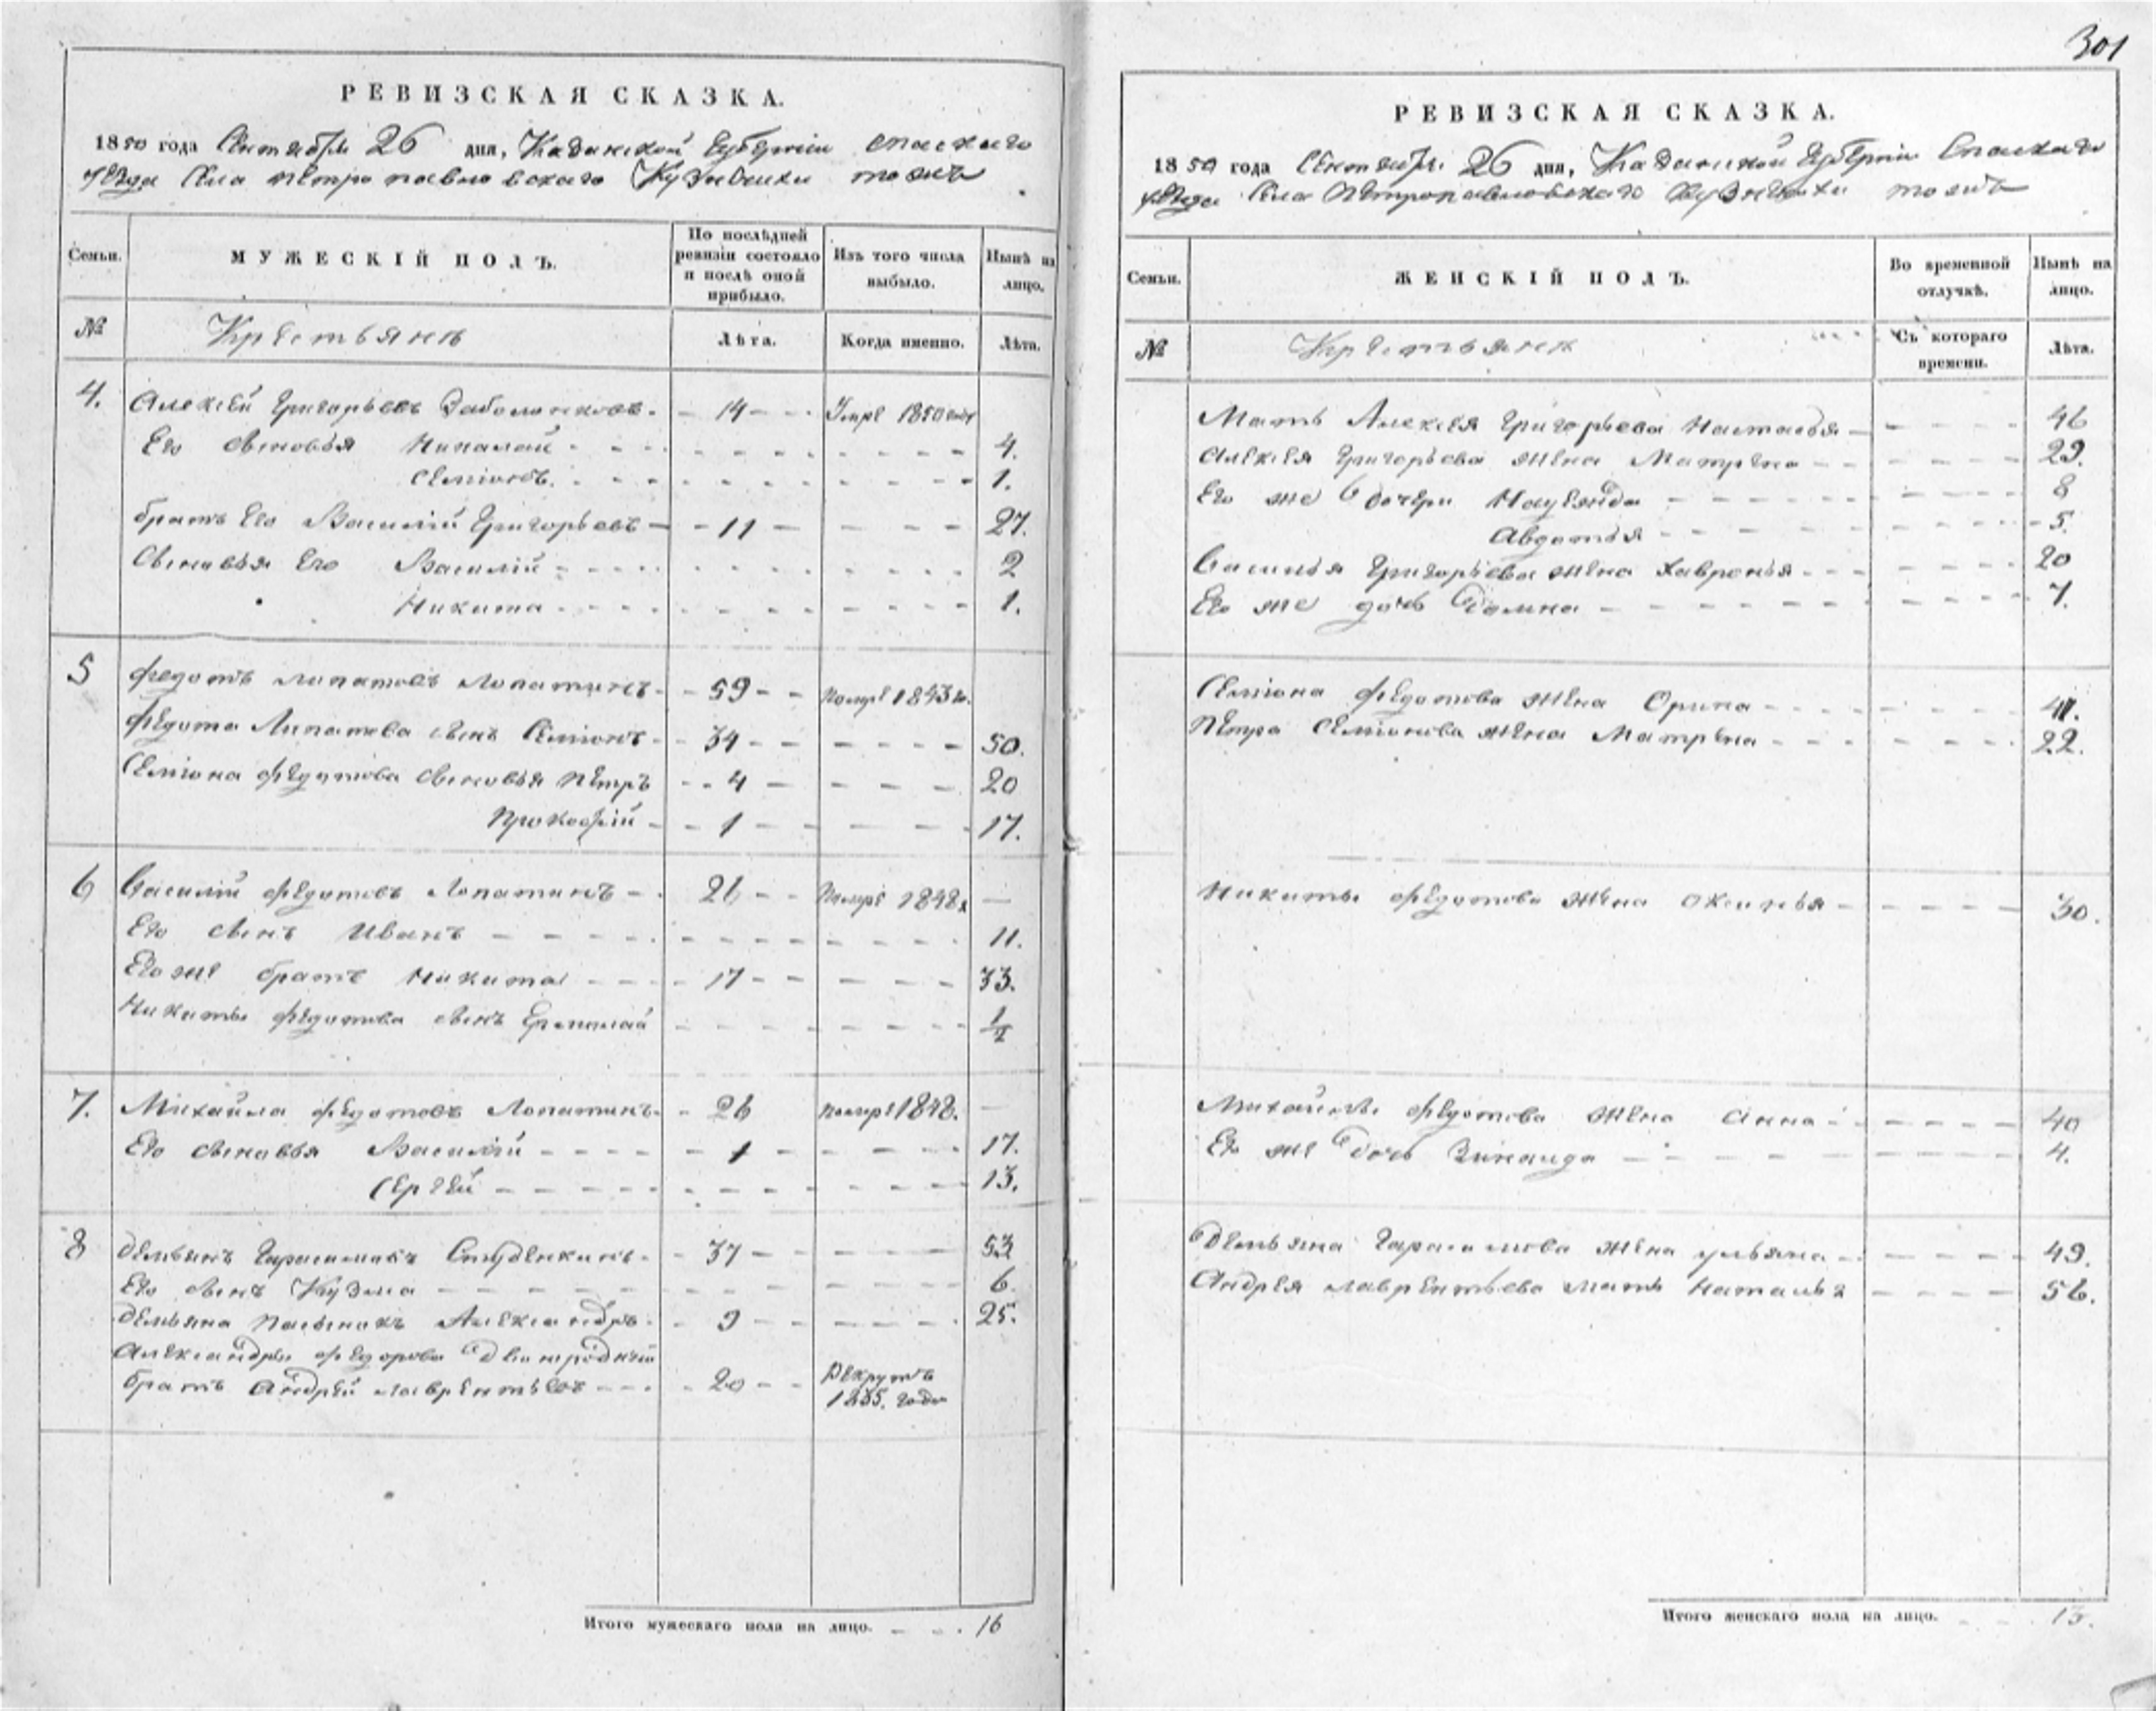 301
РЕВИЗСКАЯ СКАЗКА.
1850 года Сентября 26 дня, Казанской Губернии Спаскаго
уезда Села Петропавловскаго Кузнечиха тожъ
Семьи. МУЖЕСКІЙ ПОЛЪ. По послѣдней ревизіи состояло и послѣ оной прибыло. Изъ того числа выбыло. Нынѣ на лицо.
№ Крестьяне Лѣта. Когда именно. Лѣта.
4. Алексей Григорьевъ - 14 - - Умре 1850 года
Его сыновья Николай - - - 4.
Семіонъ. - - - 1.
братъ Его Василій Григорьевъ - - 11 - - - - 27.
Сыновья Его Василій - - - - 2
Никита - - - - 1.
5 Федотъ Лопатинъ - 59 - - Помре 1843 го.
Федота Липатова сынъ Семіонъ - 34 - - - - - 50.
Семіона Федотова сыновья Петръ - - 4 - - - - 20
Прокофій - - 1 - - - - 17.
6 Василій Федотовъ Лопатинъ - 26 - - Помре 1848 —
Его сынъ Иванъ - - - - 11.
Его же братъ Никита - - - 17 - - - - - 33.
Никиты Федотова сынъ Ермолай - - - - 1/2
7. Михайла Федотовъ Лопатинъ - 26 Помре 1848. —
Его сыновья Василій - - - - - 1 - - - - 17.
Сергей - - - - - 13.
8 Демьянъ Гарасимовъ Студенкинъ - 37 - - - - 53
Его сынъ Кузма - - - - 6.
Демьяна пасынокъ Александръ - 9 - - - - - 25.
Александры Федорова двоюродный
братъ Андрей Лаврентьевъ - - - 20 - - Рекрутъ
1835. года
Итого мужескаго пола на лицо. - - . 16
РЕВИЗСКАЯ СКАЗКА.
1850 года Сентября 26 дня, Казанской Губернии Спаскаго
уезда Села Петропавловскаго Кузнечихи тожъ
Семьи. ЖЕНСКІЙ ПОЛЪ. Во временной отлучкѣ. Нынѣ на лицо.
№ Крестьяне Съ котораго времени. Лѣта.
Мать Алексея Григорьева Настасья - - - - 46
Алексея Григорьева жена Матрена - - - - 29.
Его же дочери - - - - 8
Авдотья - - - - 5.
Василья Григорьева жена Хавронья - - - - 20
Его же дочь Домна - - - - 7.
Семіона Федотова жена Орина - - - - 41.
Петра Семіонова жена Матрена - - - - 22.
Никиты Федотова жена Аксинья - - - - 30.
Михайлы Федотова жена Анна - - - - 40
Его же дочь Зинаида - - - - 4.
Демьяна Гарасимова жена Ульяна - - - - 49.
Андрея Лаврентьева мать Наталья - - - - 56.
Итого женскаго пола на лицо. - - - 13.